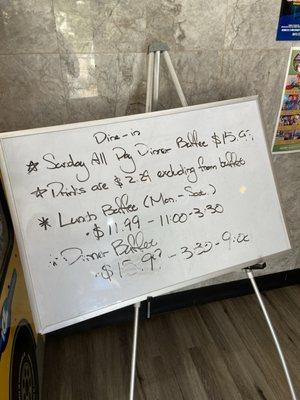 Dine-in
☆ Sunday All Day Dinner Buffee $15.95
☆ Drinks are $2.29 excluding from buffet
* Lunch Buffee (Mon. - Sat.)
• $11.99 - 11:00-3:30
Dinner Buffee
• $15.95 - 3:30-9:00